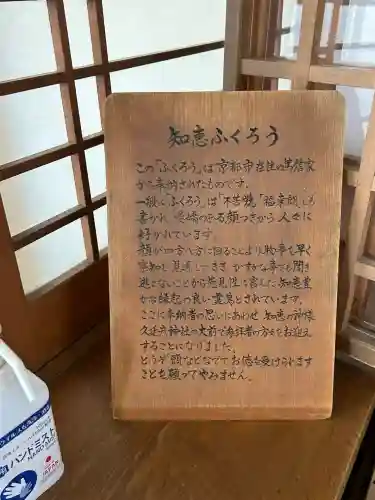 知恵ふくろう
この「ふくろう」は京都市在住の篤信家
から奉納されたものです。
一般に ふくろうは「不苦労」「福来朗」とも
書かれ、愛嬌のある顔つきから人々に
好かれています。
顔が四方八方に回ることより物事を早く
察知し見通しできき かすかな音でも聞き
逃さないことから先見性に富んだ知恵豊
かな縁起の良い霊鳥とされています。
ここに奉納者の思いにあわせ 知恵の神様
久延彦神社の大前で参拝者の方々をお迎え
することになりました。
どうぞ頭などなでてお徳を受けられます
ことを願ってやみません。
ハンドミスト
HAND MIST